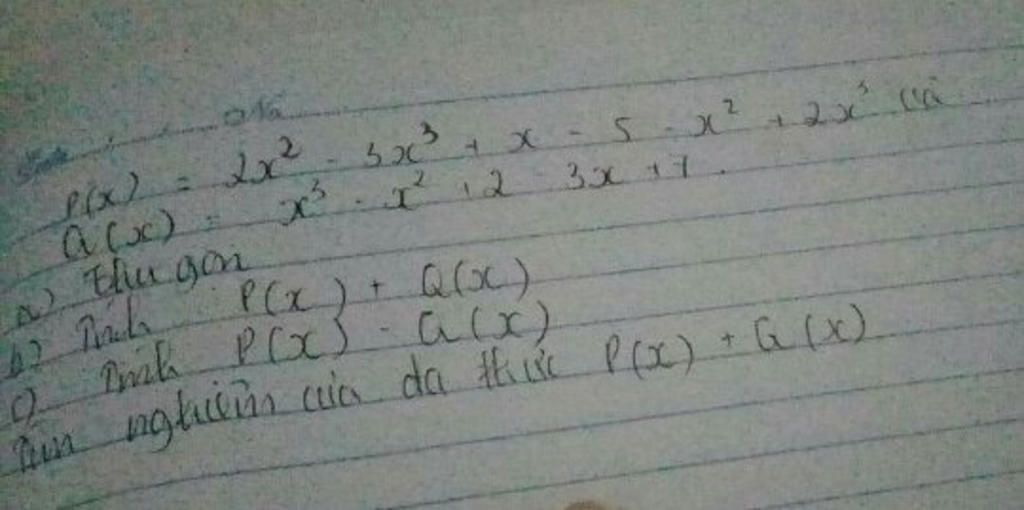 P(x) = 2x² - 3x³ + x - 5 - x² + 2x³ và
Q(x) = x³ - x² + 2 - 3x + 1.
a) thu gọn
b) Tính P(x) + Q(x)
c) Tính P(x) - Q(x)
Tìm nghiệm của đa thức P(x) + Q(x)